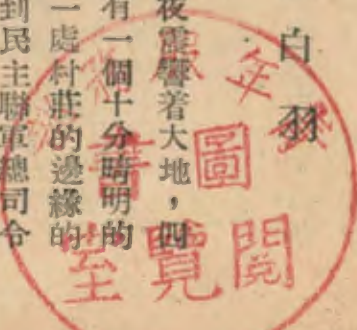 白羽
夜震響着大地，四
有一個十分晴明的
一處村莊的邊緣的
到民主聯軍總司令
年服
圖書
閱覽室